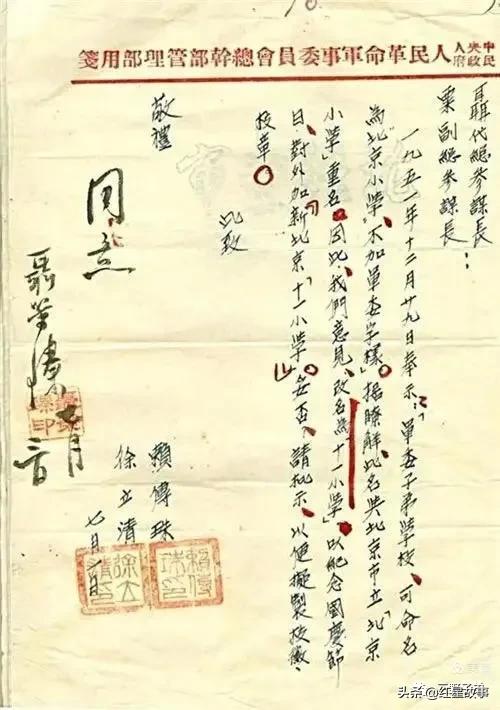 中央人民政府人民革命軍事委員會總幹部管理部用箋
聶代總參謀長
粟副總參謀長：
一九五一年十二月廿九日奉示：「軍委子弟學校、可命名
為"北京小學"、不加軍委字樣」。据瞭解、此名與北京市立"北京
小學"重名。因此、我們意見、改名為"十一小學"、以紀念國慶節
日、對外加"新北京"十一小學"。妥否、請批示、以便擬製校徽、
校章。
此致
敬禮
賴傳珠
徐立清
七月
同意
聶榮臻 七月
头条 @红星故事